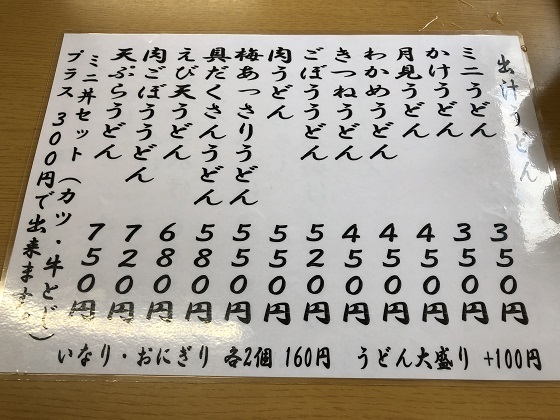 出汁うどん
ミニうどん 350円
かけうどん 350円
月見うどん 450円
わかめうどん 450円
きつねうどん 450円
ごぼううどん 520円
肉うどん 550円
梅あっさりうどん 550円
具だくさんうどん 580円
えび天うどん 680円
肉ごぼううどん 720円
天ぷらうどん 750円
ミニ丼セット(カツ・牛とじ)
プラス 300円で出来ます
いなり・おにぎり 各2個 160円 うどん大盛り +100円